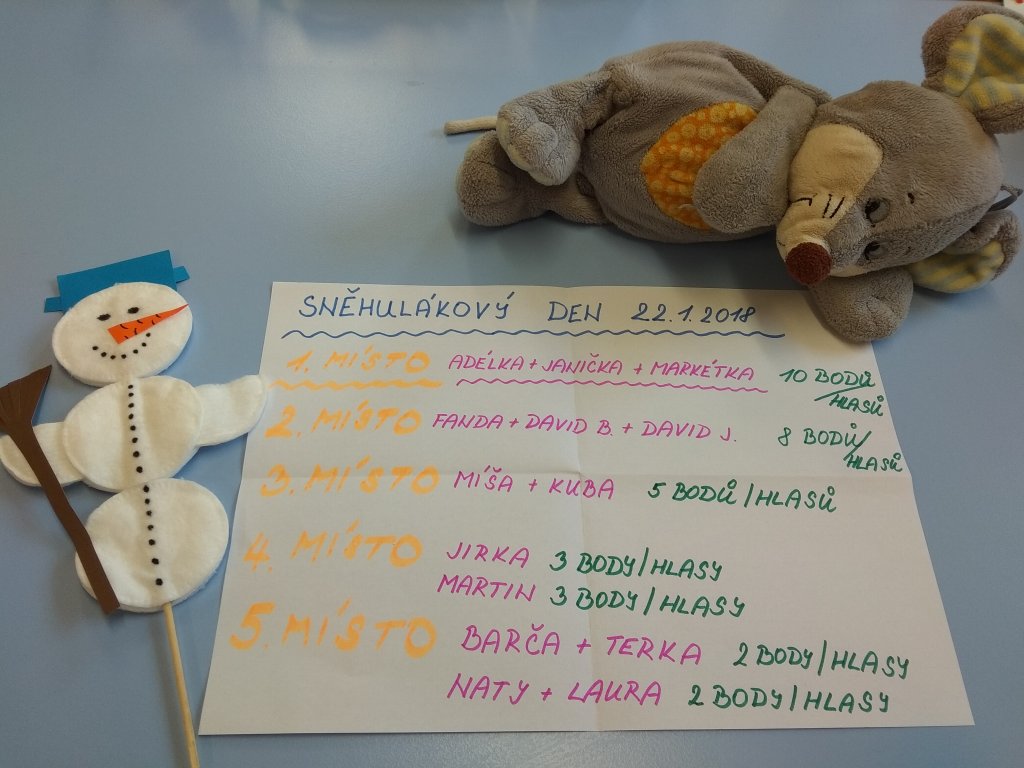 SNĚHULÁKOVÝ DEN 22.1.2018
1. MÍSTO ADÉLKA + JANIČKA + MARKÉTKA 10 BODŮ/
HLASŮ
2. MÍSTO FANDA + DAVID B. + DAVID J. 8 BODŮ/
HLASŮ
3. MÍSTO MÍŠA + KUBA 5 BODŮ/HLASŮ
4. MÍSTO JIRKA 3 BODY/HLASY
MARTIN 3 BODY/HLASY
5. MÍSTO BARČA + TERKA 2 BODY/HLASY
NATY + LAURA 2 BODY/HLASY